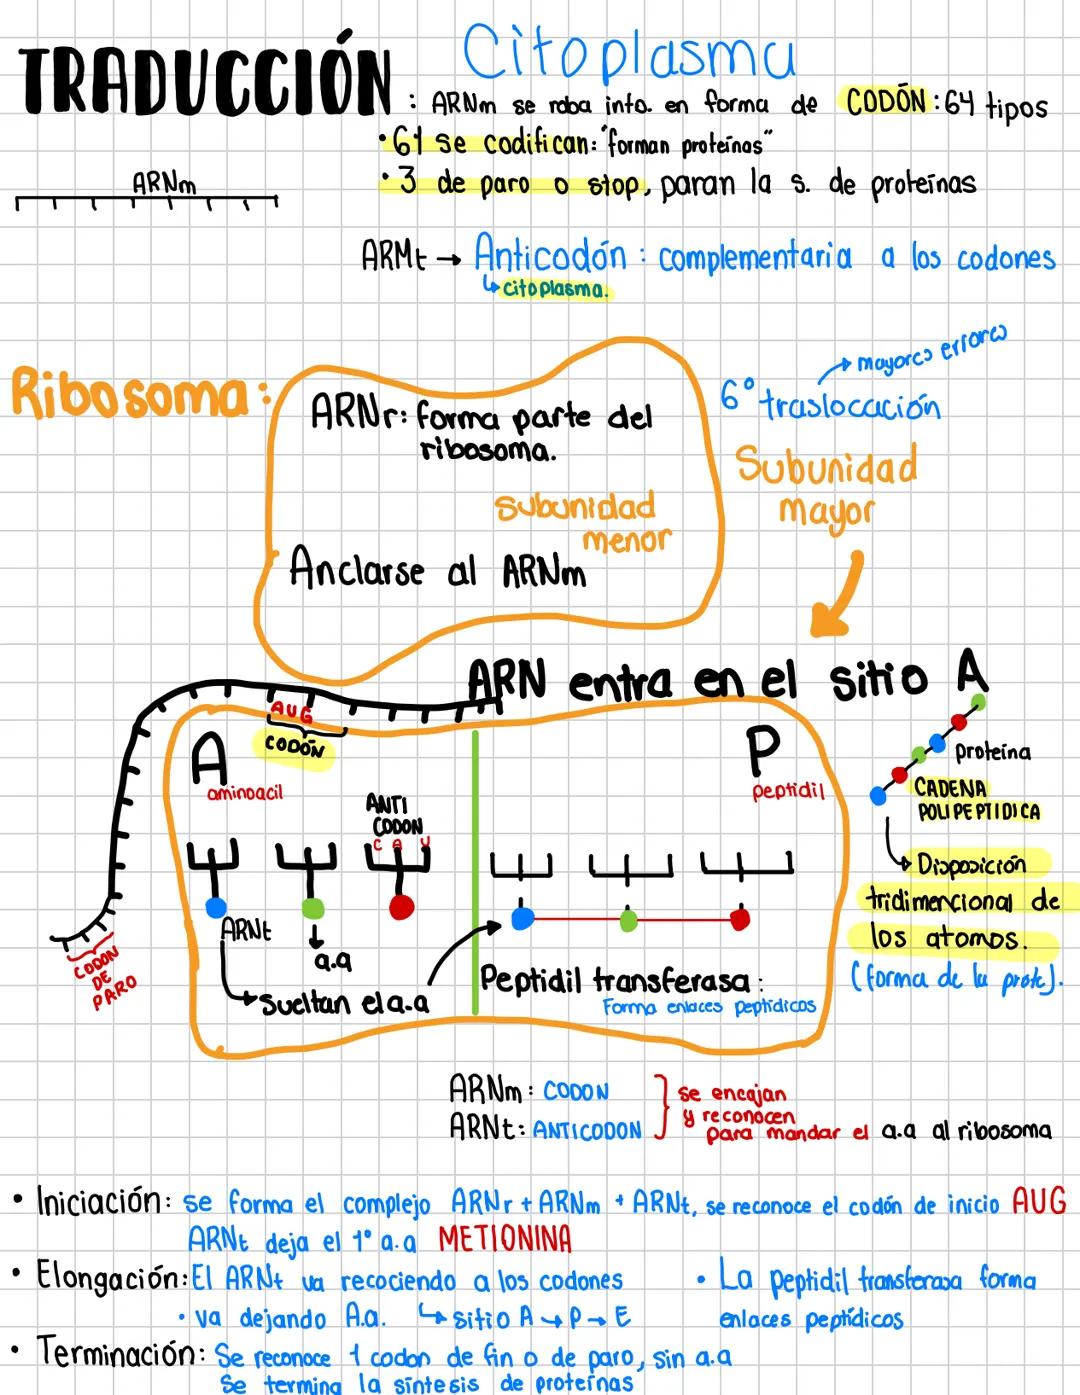 TRADUCCIÓN
Citoplasma
: ARNm se roba info. en forma de CODÓN: 64 tipos
• 61 se codifican: "forman proteínas"
• 3 de paro o stop, paran la s. de proteínas
ARNm
ARMt → Anticodón: complementaria a los codones
↳ citoplasma.
Ribosoma:
ARNr: forma parte del
ribosoma.
subunidad
menor
Anclarse al ARNm
→ mayores errores
6° traslocación
Subunidad
mayor
ARN entra en el sitio A
AUG
CODÓN
A
aminoacil
ANTI
CODON
C A U
P
peptidil
proteína
CADENA
POLIPEPTIDICA
↳ Disposición
tridimencional de
los atomos.
(forma de la prote).
ARNt
a.a
→ Sueltan el a.a
Peptidil transferasa:
Forma enlaces peptídicos
CODON
DE
PARO
ARNm: CODON
ARNt: ANTICODON
se encajan
y reconocen
para mandar el a.a al ribosoma
• Iniciación: se forma el complejo ARNr + ARNm + ARNt, se reconoce el codón de inicio AUG
ARNt deja el 1° a.a METIONINA
• Elongación: El ARNt va recociendo a los codones
• va dejando A.a. ↳ sitio A → P → E
• La peptidil transferasa forma
enlaces peptídicos
• Terminación: Se reconoce 1 codon de fin o de paro, sin a.a
Se termina la síntesis de proteínas